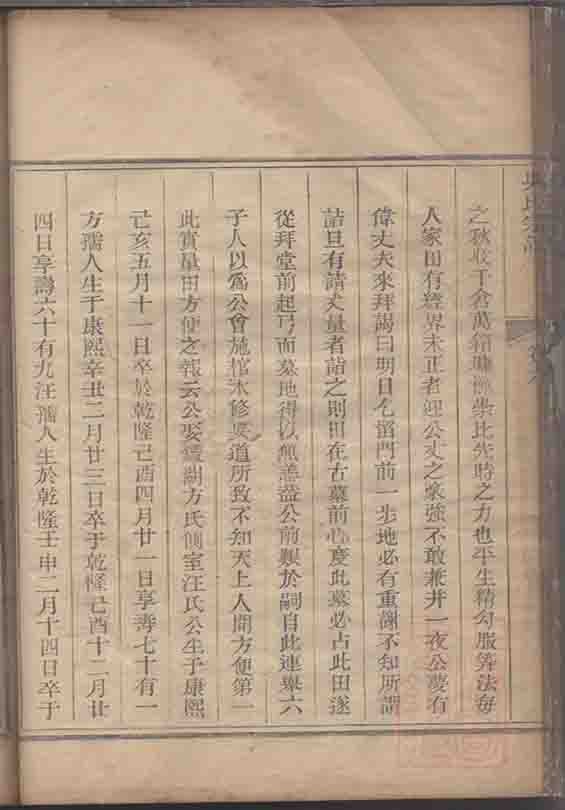 之秋收千倉萬箱崇比先時之力也平生精勾股筭法每
人家田有經界未正者迎公丈之豪強不敢兼并一夜公夢有
偉丈夫來拜謁曰明日乞留門前一步地必有重謝不知所謂
詰旦有請丈量者詣之則田在古墓前心度此墓必占此田遂
從拜堂前起弓而墓地得以無恙蓋公前艱於嗣自此連舉六
子人以爲公會施棺木修道所致不知天上人間方便第一
此實量田方便之報云公娶鑊湖方氏側室汪氏公生于康熙
己亥五月十一日卒於乾隆己酉四月廿一日享壽七十有一
方孺人生于康熙辛丑二月廿三日卒于乾隆己酉十二月廿
四日享壽六十有九汪孺人生於乾隆壬申二月十四日卒于